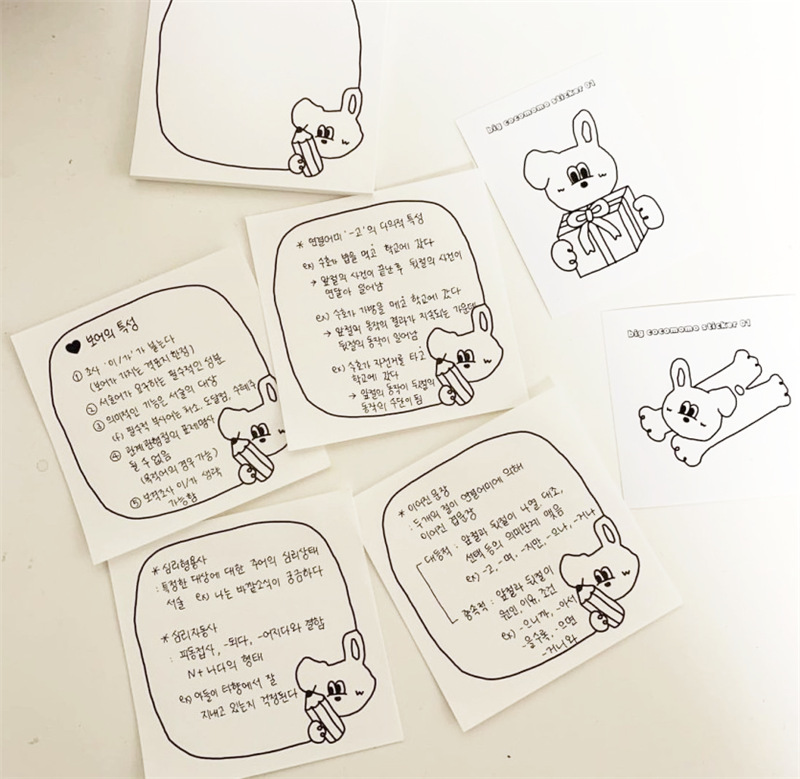 big cocomomo sticker 01
* 연결어미 '-고'의 다의적 특성
ex) 수호가 밥을 먹고 학교에 갔다
→ 앞절의 사건이 끝난 후 뒷절의 사건이
연달아 일어남
ex) 수호가 가방을 메고 학교에 갔다
→ 앞절의 동작의 결과가 지속되는 가운데
뒷절의 동작이 일어남
ex) 수호가 자전거를 타고
학교에 갔다
→ 앞절의 동작이 뒷절의
동작의 수단이 됨
♥ 보어의 특성
① 조사 '이/가'가 붙는다
(보어가 가지는 격표지 한정)
② 서술어가 요구하는 필수적인 성분
③ 의미적인 기능은 서술의 대상
cf) 필수적 부사어는 처소, 도달점, 수혜
④ 관계 관형절의 표제명사
될 수 없음
(목적어의 경우 가능)
⑤ 보격조사 이/가 생략
가능함
big cocomomo sticker 01
* 심리형용사
: 특정한 대상에 대한 주어의 심리상태
서술 ex) 나는 바깥소식이 궁금하다
* 심리자동사
: 피동접사, -되다, -어지다와 결합
N + 나다의 형태
ex) 아들이 타향에서 잘
지내고 있는지 걱정된다
* 이어진문장
: 두개의 절이 연결어미에 의해
이어진 겹문장
대등적 : 앞절과 뒷절이 나열, 대조,
선택 등의 의미관계 맺음
ex) -고, -며, -지만, -으나, -거나
종속적 : 앞절과 뒷절이
원인, 이유, 조건
ex) -으니까, -아서
-을수록, -으면
-거니와